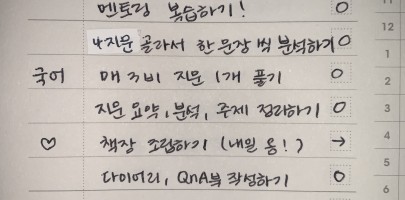 멘토링 복습하기! O
4지문 골라서 한 문장 씩 분석하기 O
국어 매3비 지문 1개 풀기 O
지문 요약, 분석, 주제 정리하기 O
♡ 책장 조립하기 (내일 옴!) →
다이어리, QnA북 작성하기 O
12
1
2
3
4
5